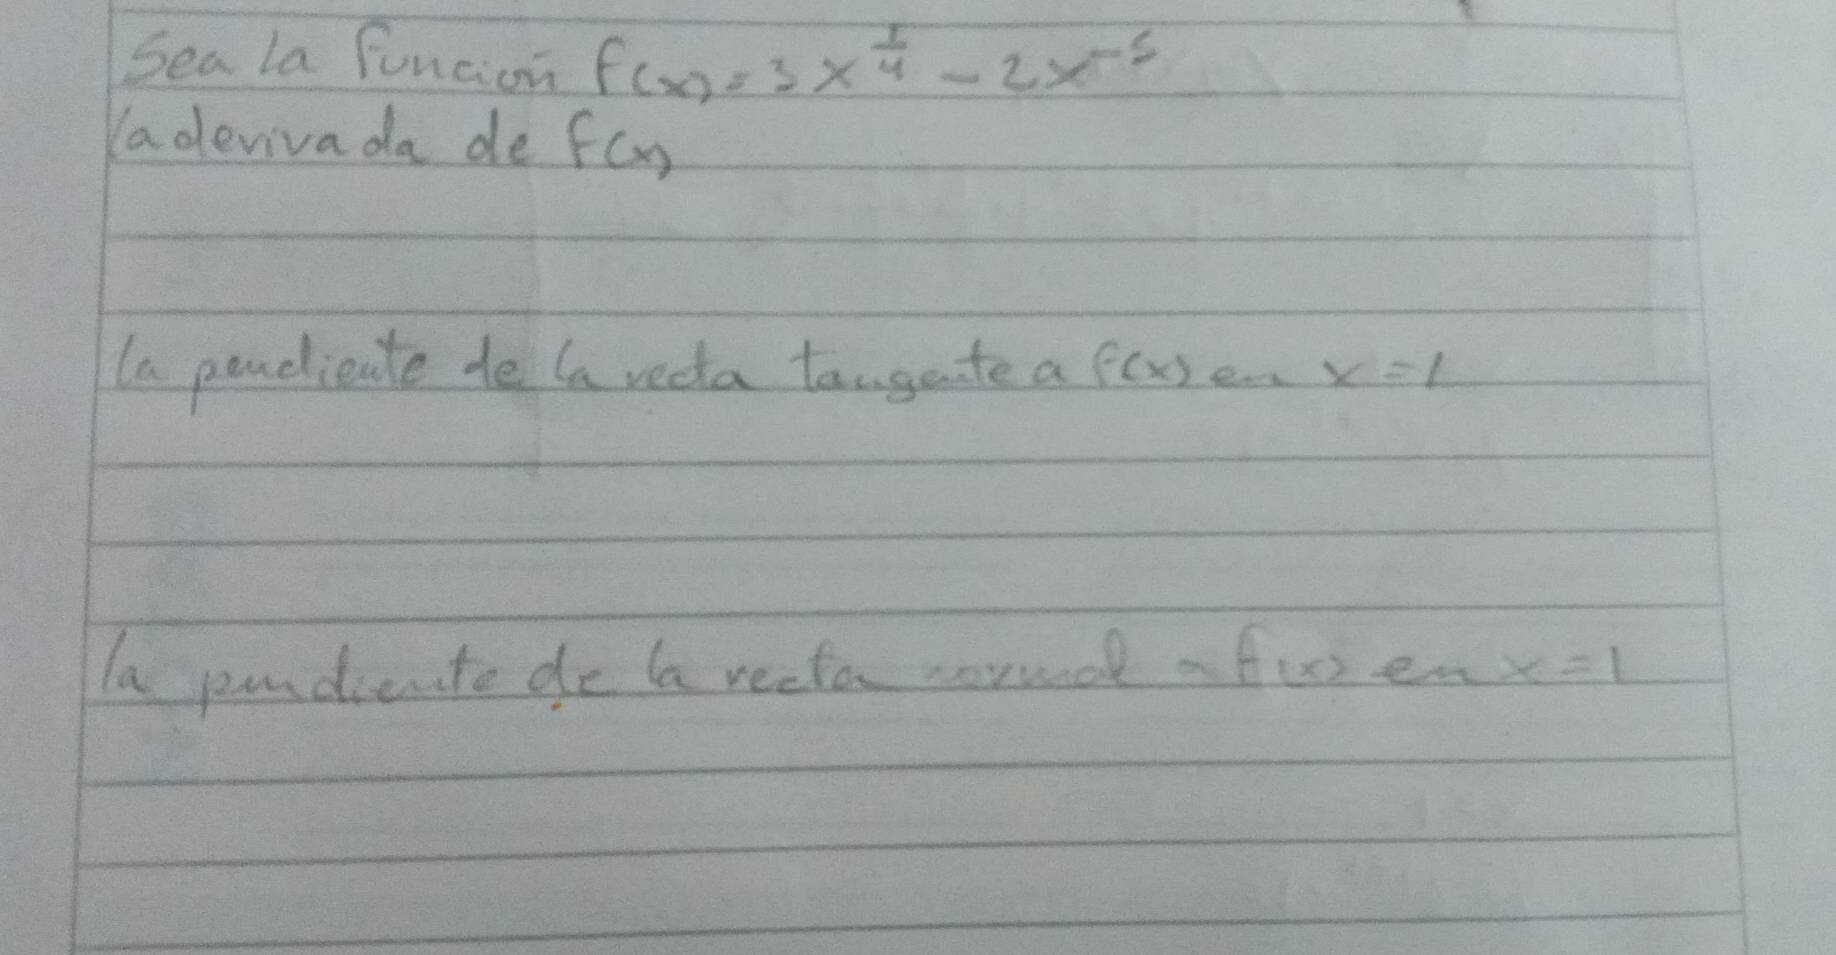 Sea la función f(x) = 3x^{1/4} - 2x^{-5}
la derivada de f(x)
la pendiente de la recta tangente a f(x) en x = 1
la pendiente de la recta normal a f(x) en x = 1